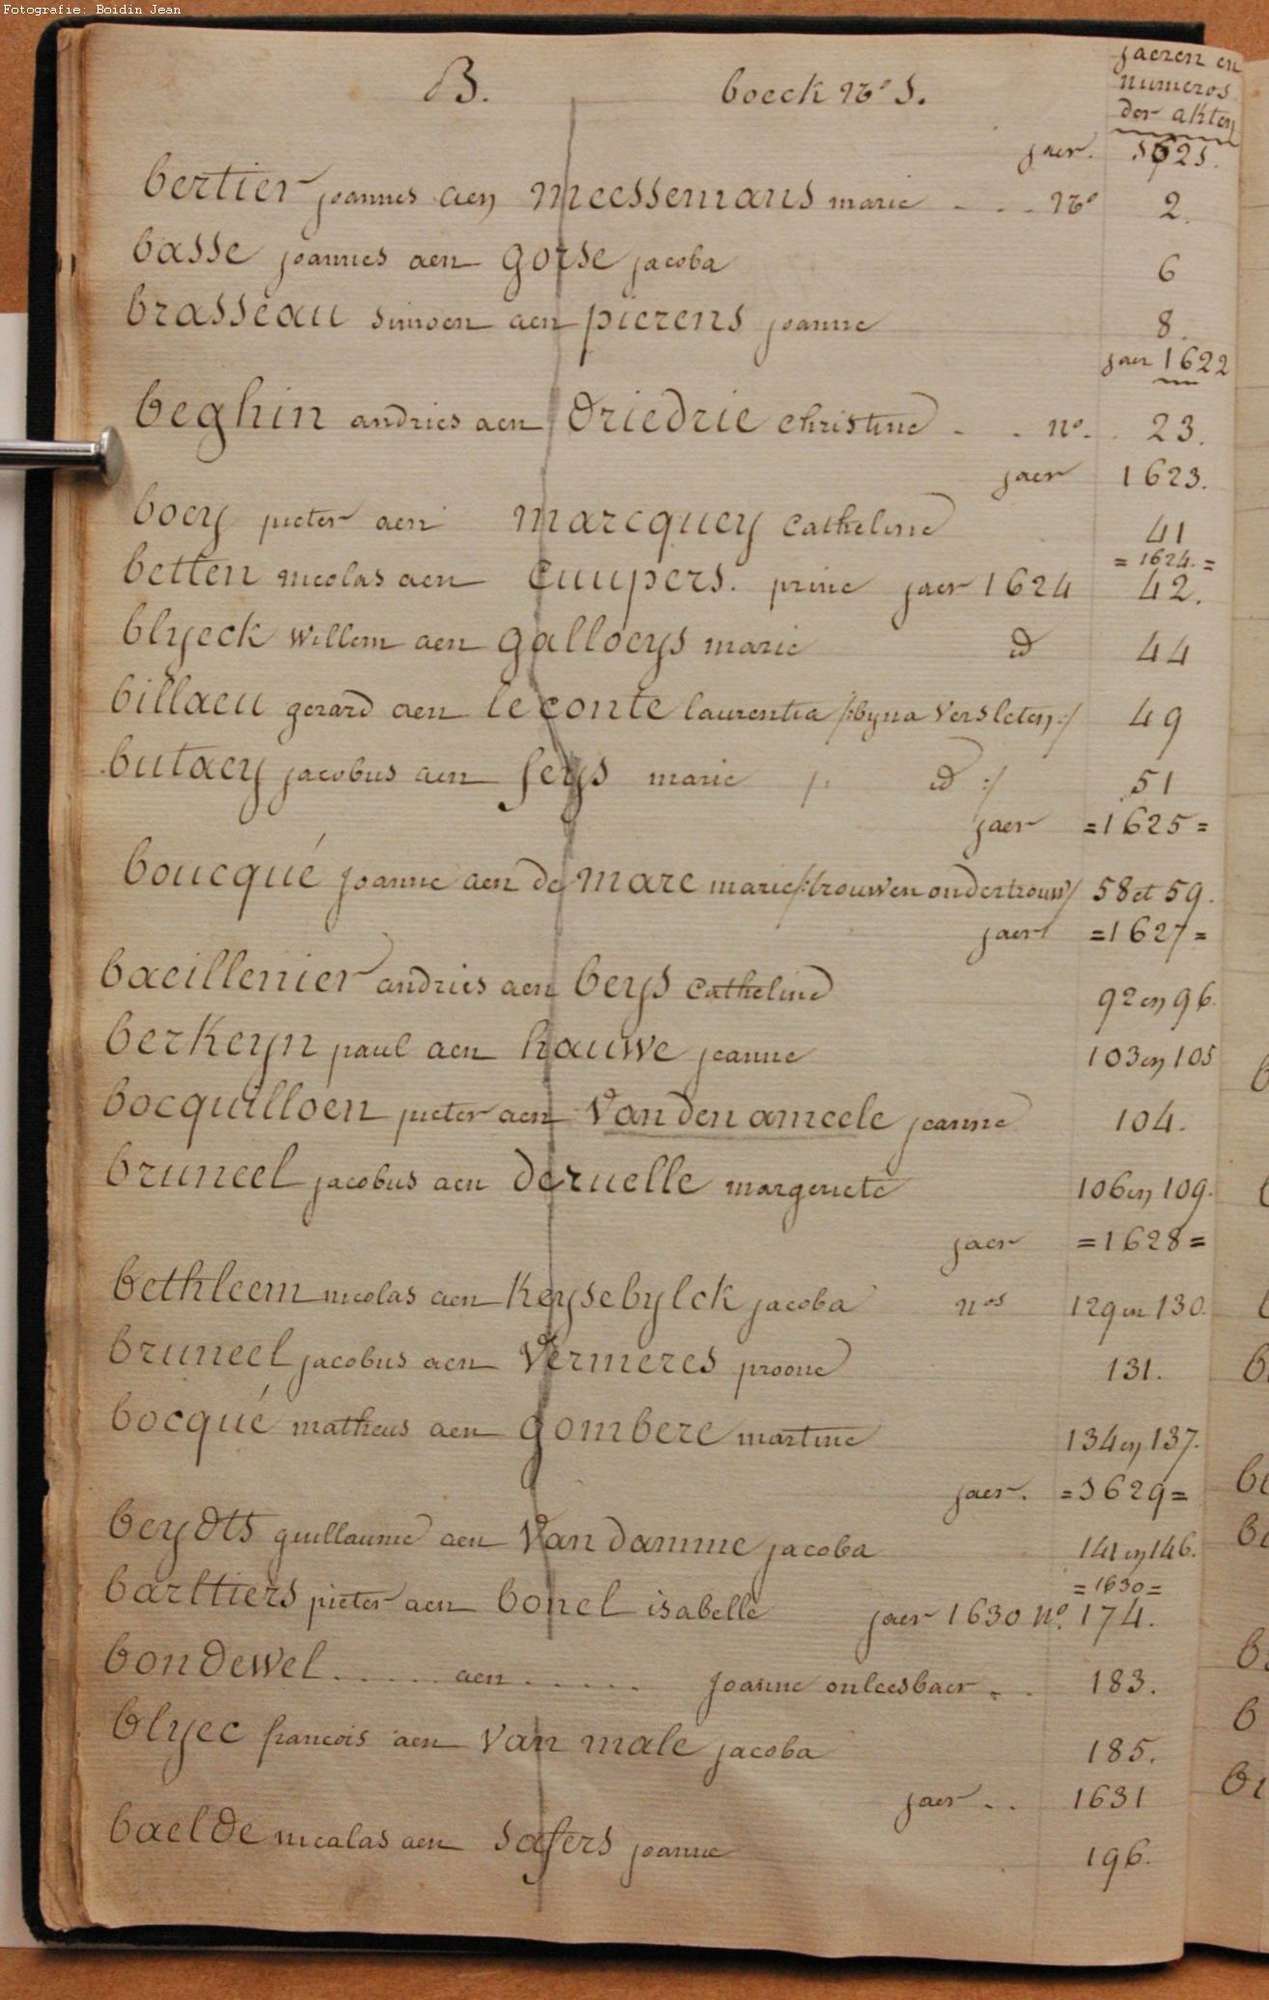 Fotografie: Boidin Jean
B. boeck No 1.
jaeren en
numeros
der akten
jaer. 1621.
bertier joannes aen meessemans marie - - - No 2.
basse joannes aen gorse jacoba 6
brasseau simoen aen pierens joanne 8.
jaer 1622
beghin andries aen driedrie christine - - no. 23.
jaer 1623.
boey pieter aen marcquey catheline 41
= 1624. =
betten nicolas aen cuupers. prine jaer 1624 42.
blyeck willem aen galloeys marie id 44
billaeu gerard aen le conte laurentia /:byna versleten:/ 49
butaey jacobus aen feys marie /: id :/ 51
jaer =1625=
boucqué joanne aen de mare marie /:trouw en ondertrouw/ 58 et 59.
jaer =1627=
baeillenier andries aen beys catheline 92 en 96.
berkeyn paul aen hauwe jeanne 103 en 105
bocquilloen pieter aen van den ameele jeanne 104.
bruneel jacobus aen deruelle margeriete 106 en 109.
jaer =1628=
bethleem nicolas aen keysebylck jacoba nos 129 en 130.
bruneel jacobus aen vermeres proone 131.
bocqué matheus aen gombere martine 134 en 137.
jaer. =1629=
beydts guillaume aen van damme jacoba 141 en 146.
=1630=
barttiers pieter aen bonel isabelle jaer 1630 no. 174.
bondewel . . . . . aen . . . . . . joanne onleesbaer - . 183.
blyec francois aen van male jacoba 185.
jaer - . . 1631
baelde nicalas aen safers joanne 196.